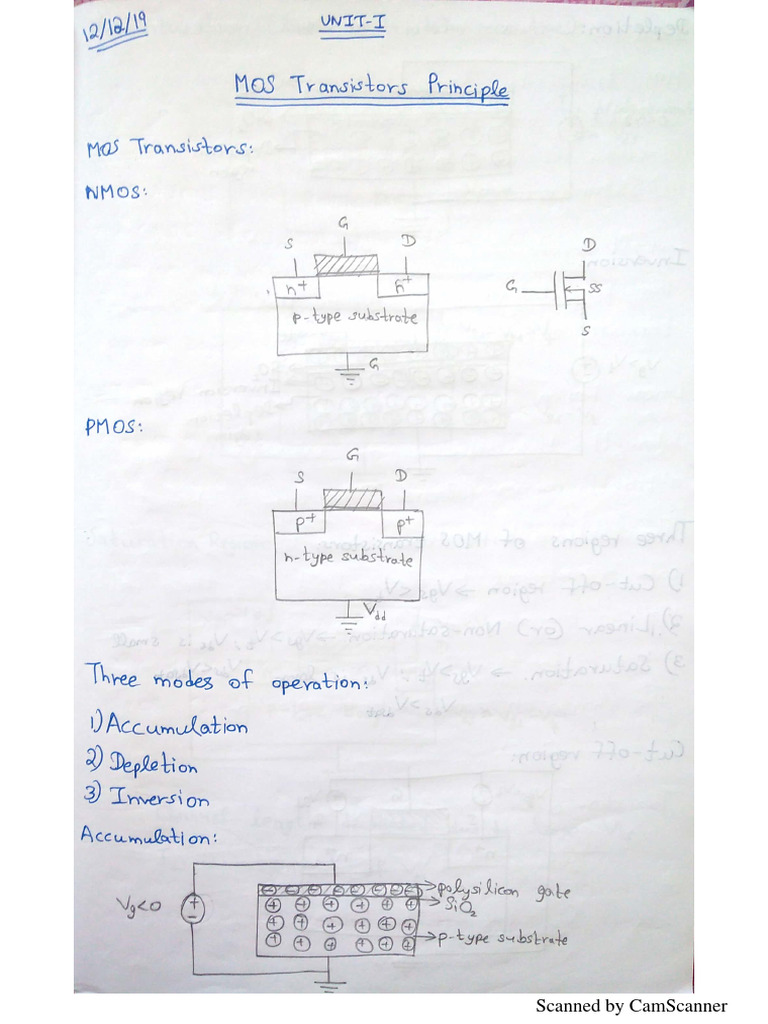 12/12/19
UNIT-I
MOS Transistors Principle
MOS Transistors:
NMOS:
G
S D
n+ n+
p-type substrate
G
D
G SS
S
PMOS:
G
S D
p+ p+
n-type substrate
Vdd
Three modes of operation:
1) Accumulation
2) Depletion
3) Inversion
Accumulation:
Vg<0
+
-
polysilicon gate
SiO2
p-type substrate
Scanned by CamScanner